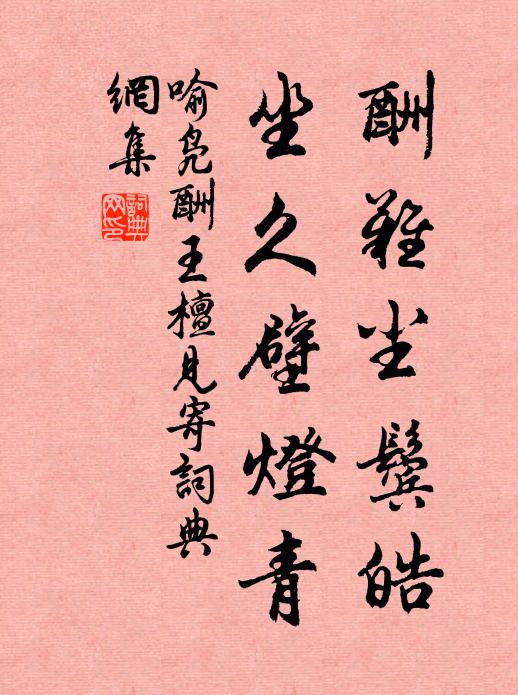 酬難坐鬢皓
坐久壁燈青
喻鳧酬王檀見寄詞典
網集
詞典
網印